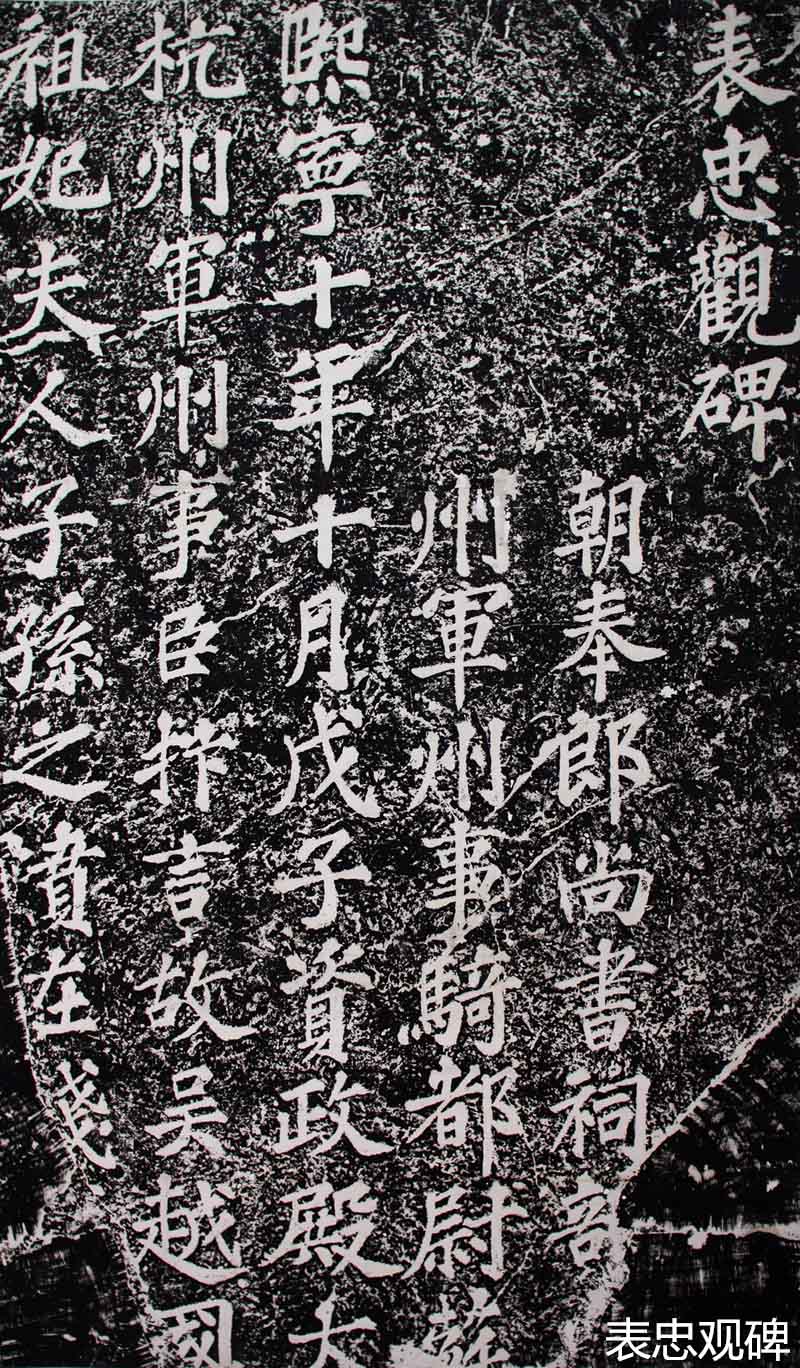 表忠觀碑
朝奉郎尚書祠部
州軍州事騎都尉蘇
熙寧十年十月戊子資政殿大
杭州軍州事臣抃言故吴越國
祖妃夫人子孫之墳在錢
表忠观碑